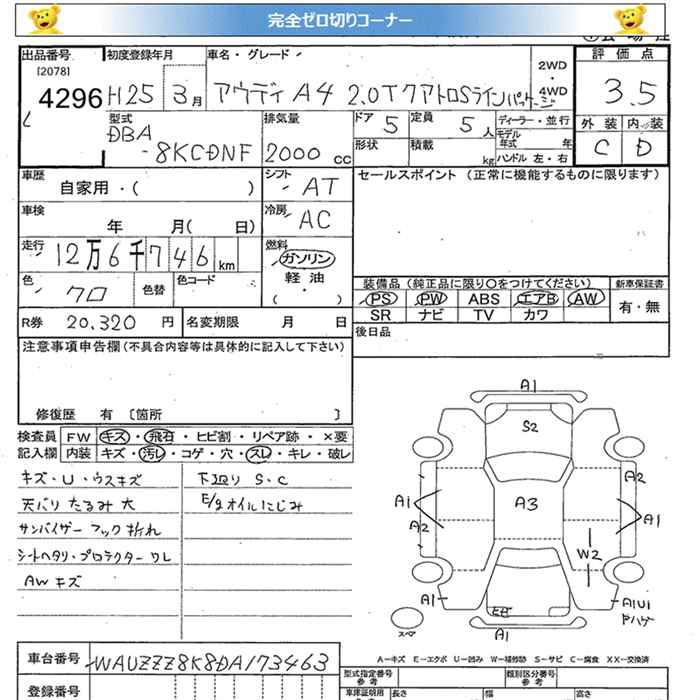 完全ゼロ切りコーナー
出品番号 初度登録年月 車名・グレード 評価点
[2078] 2WD
4296 H25 3月 アウディ A4 2.0Tクアトロ Sラインパッケージ ・4WD 3.5
型式 排気量 ドア 5 定員 5人 ディーラー・並行 外装 内装
DBA モデル年式 年
-8KCDNF 2000cc 形状 積載 kg ハンドル 左・右 C D
車歴 シフト AT セールスポイント (正常に機能するものに限ります)
自家用・( )
車検 年 月( 日) 冷房 AC
走行 12万6千746km 燃料 ガソリン
軽油
・( )
色 クロ 色替 色コード
装備品 (純正品に限り○をつけてください) 新車保証書
PS PW ABS エアB AW 有・無
SR ナビ TV カワ
R券 20,320円 名変期限 月 日
後日品
注意事項申告欄 (不具合内容等は具体的に記入して下さい)
修復歴 有 〔箇所 〕
検査員 FW キズ・飛石・ヒビ割・リペア跡・×要
記入欄 内装 キズ・汚レ・コゲ・穴・スレ・キレ・破レ
キズ・U・ウスキズ 下廻り S・C
天バリ たるみ 大 E/g オイルにじみ
サンバイザー フック折れ
シートヘタリ・プロテクター ワレ
AW キズ
A1
S2
A2
A1 A3 A1
A2
W2
A1 ヒビ A1U1
スペア A1
A-キズ E-エクボ U-凹み W-補修跡 S-サビ C-腐食 XX-交換済
車台番号 WAUZZZ8K8DA173463
登録番号 型式指定番号 参考 類別区分番号 参考
車庫証明用 長さ 幅 高さ